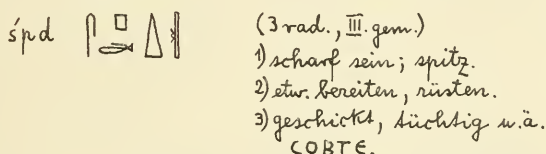 śpd 𓋴𓊪𓂧𓇮𓏜 (3 rad., III. gem.)
1) scharf sein; spitz.
2) etw. bereiten, rüsten.
3) geschickt, tüchtig u.ä.
ⲥⲟⲃⲧⲉ.